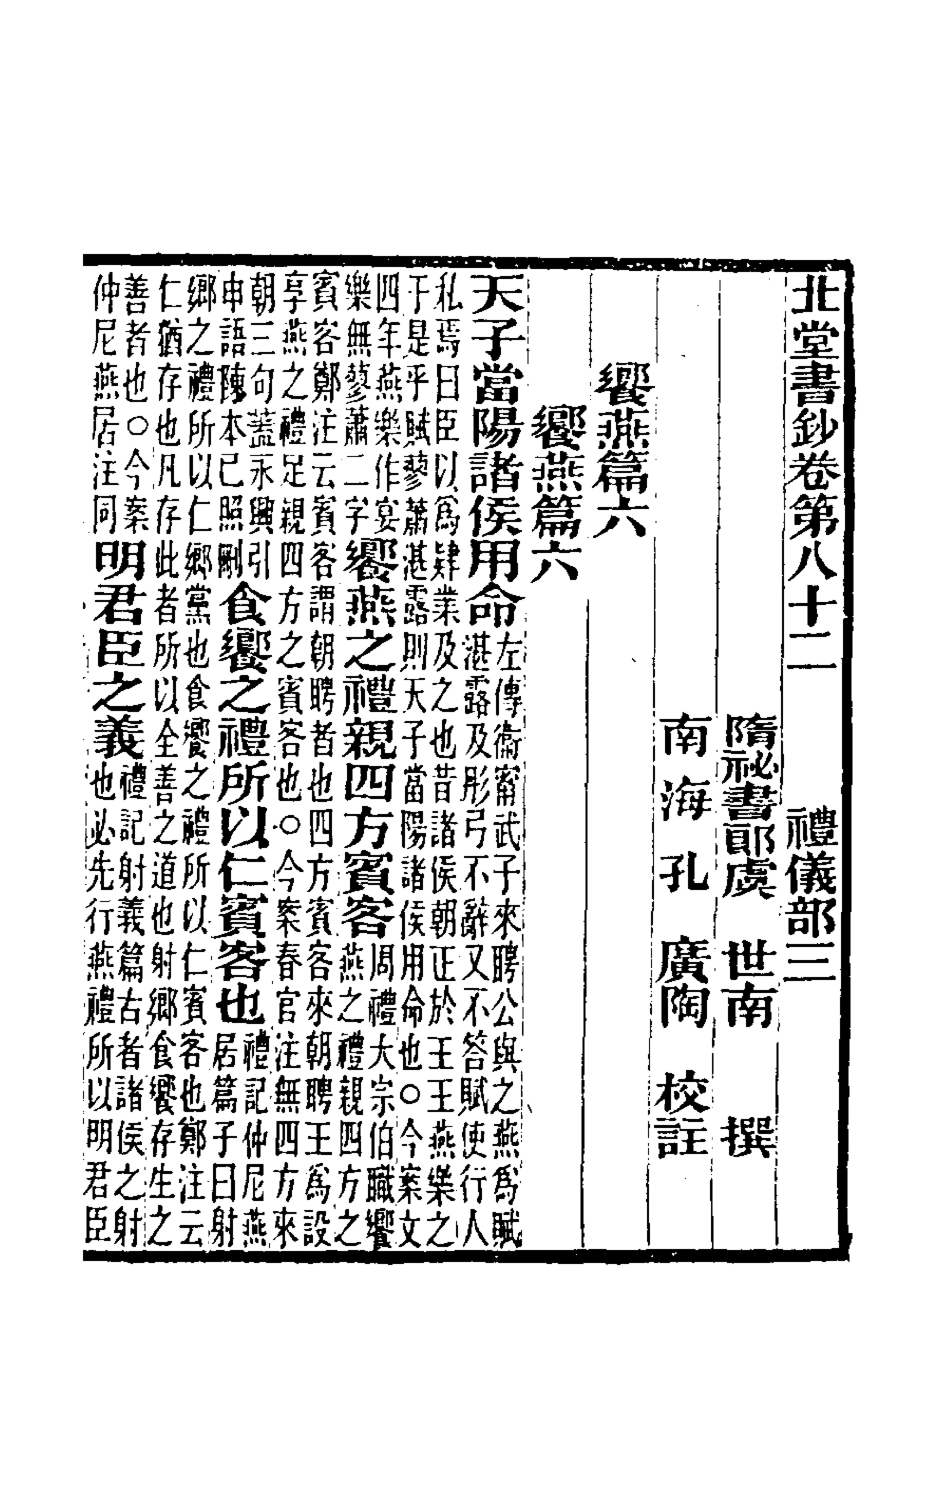 北堂書鈔卷第八十二　禮儀部三
隋祕書郎虞　世南　撰
南海孔　廣陶　校註
饗燕篇六
饗燕篇六
天子當陽諸侯用命左傳衞甯武子來聘公與之燕爲賦湛露及彤弓不辭又不答賦使行人
私焉曰臣以爲肄業及之也昔諸侯朝正於王王燕樂之
于是乎賦蓼蕭湛露則天子當陽諸侯用命也○今案文
四年燕樂作宴樂無蓼蕭二字饗燕之禮親四方賓客周禮大宗伯職饗燕之禮親四方之
賓客鄭注云賓客謂朝聘者也四方賓客來朝聘王爲設
享燕之禮足親四方之賓客也○今案春官注無四方來
朝三句蓋永興引申語陳本已照刪食饗之禮所以仁賓客也禮記仲尼燕居篇子曰射
鄉之禮所以仁鄉黨也食饗之禮所以仁賓客也鄭注云
仁猶存也凡存此者所以全善之道也射鄉食饗存生之
善者也○今案仲尼燕居注同明君臣之義禮記射義篇古者諸侯之射也必先行燕禮所以明君臣